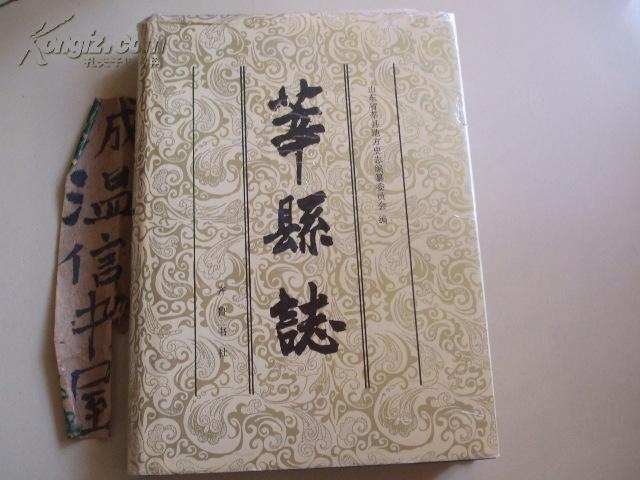 Kongfz.com
孔夫子旧书网
成
温
信
书
屋
莘縣誌
山东省莘县地方史志编纂委员会 编
齐鲁书社